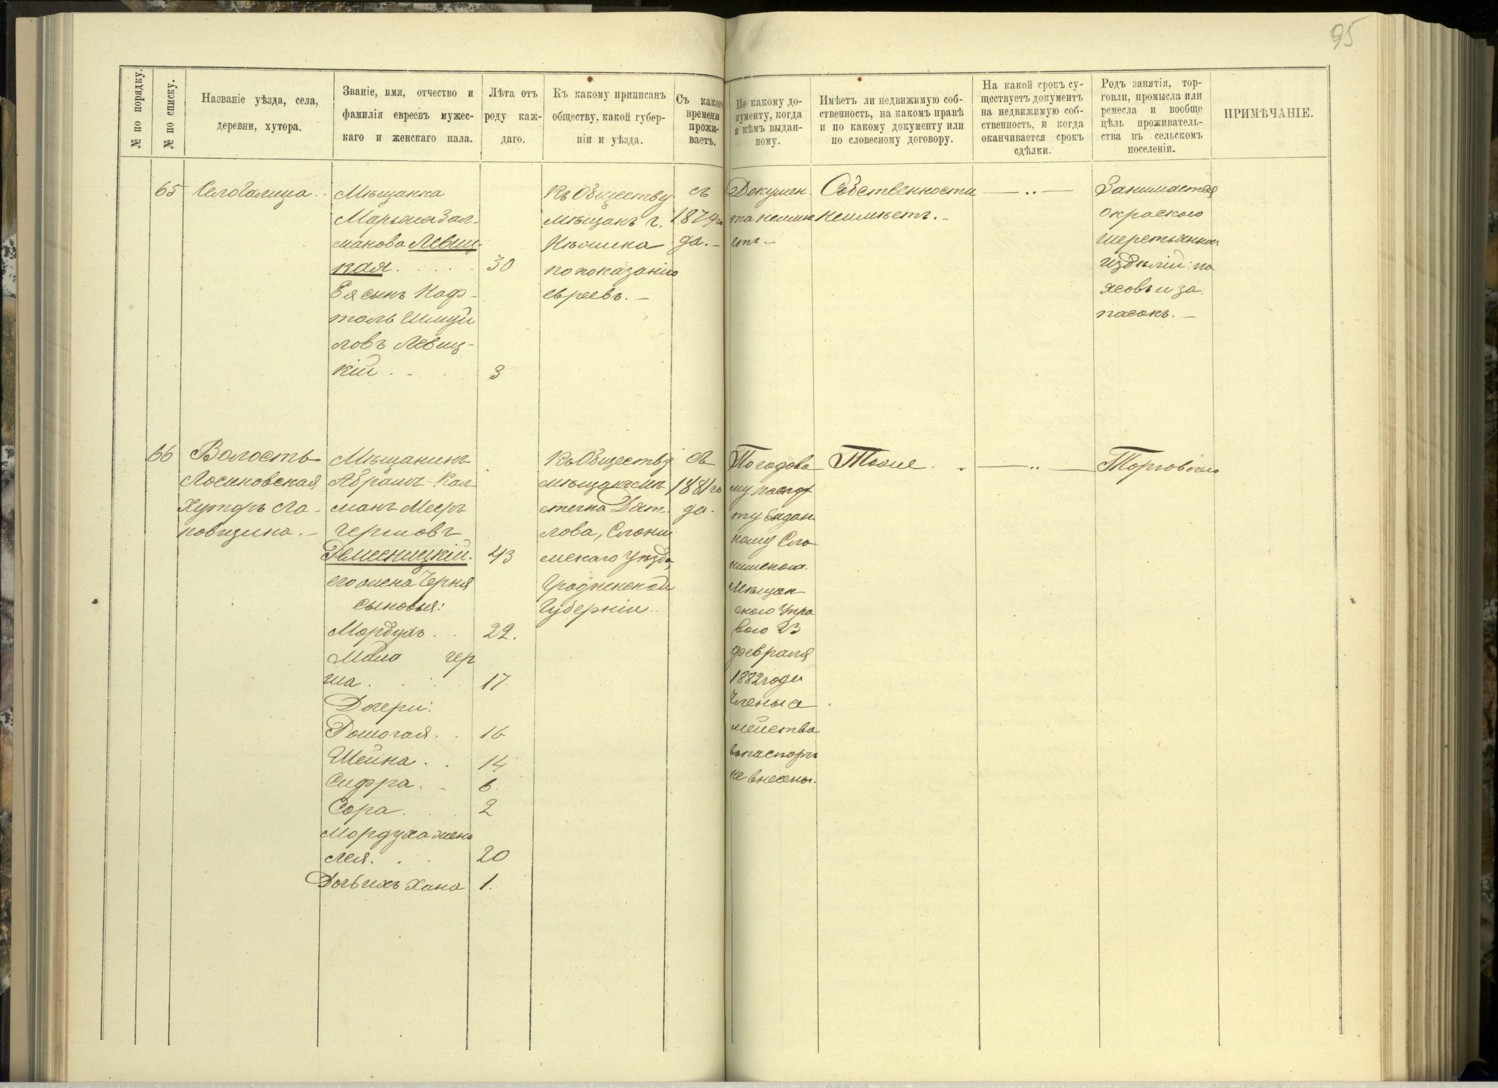 95
№ по порядку.
№ по списку.
Названіе уѣзда, села,
деревни, хутора.
Званіе, имя, отчество и
фамилія евреевъ мужес-
каго и женскаго пала.
Лѣта отъ
роду каж-
даго.
Къ какому приписанъ
обществу, какой губер-
ніи и уѣзда.
Съ какого
времени
прожи-
ваетъ.
По какому до-
кументу, когда
и кѣмъ выдан-
ному.
Имѣетъ ли недвижимую соб-
ственность, на какомъ правѣ
и по какому документу или
по словесному договору.
На какой срокъ су-
ществуетъ документъ
на недвижимую соб-
ственность, и когда
оканчивается срокъ
сдѣлки.
Родъ занятія, тор-
говли, промысла или
ремесла и вообще
цѣль проживатель-
ства въ сельскомъ
поселеніи.
ПРИМѢЧАНІЕ.
65
Село Галица.
Мѣщанка
Марьяся Зал-
манова Левиц-
кая
Ея сынъ Наф-
толь Шмуй
ловъ Левиц-
кій
30
3
Къ Обществу
мѣщанъ г.
по показанію
евреевъ. —
съ
1879 го
да. —
Докумен
та неиме
етъ —
Собственности
неимѣетъ. —
— .. —
Занимается
окраскою
шерстяных
издѣлій: по
ясовъ и за
пасокъ. —
66
Волость
Лосиновская
Хуторъ Сла-
повщина. —
Мѣщанинъ
Абрамъ Кал-
манъ Меер
гершовъ
Ремесницкій.
его жена Черня
сыновья:
Мордухъ
гер
ша
Дочери:
Шейна
Сифра
Сора
Мордуха жена
Лея
Дочь ихъ Хана
43
22.
17
16
14
6
2
20
1.
Къ Обществу
мѣщанъ мѣ
стечка Дят-
лова, Слони
мскаго Уѣзда,
Гродненской
Губерніи.
съ
1881 го
да.
По годова
му паспор
ту выдан
ному Сло
нимскою
Мѣщан
скою Упра
вою 23
февраля
1882 года
Члены се
мейства
въ паспортъ
не внесены.
Тоже.
— .. —
Торговлею